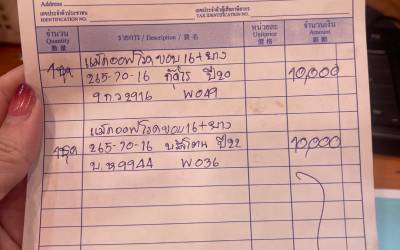 Address
เลขประจำตัวประชาชน
IDENTIFICATION NO.
เลขประจำตัวผู้เสียภาษีอากร
TAX IDENTIFICATION NO.
จำนวน
Quantity
數 量
รายการ / Description / 貨 名
หน่วยละ
Unitprice
價 格
จำนวนเงิน
Amount
銀 額
1ชุด แม็กออฟโรดขอบ16+ยาง
265-70-16 ปี20 10,000
9 กว 2916 W049
แม็กออฟโรดขอบ16+ยาง
1ชุด 265-70-16 ปี22 10,000
9944 W036